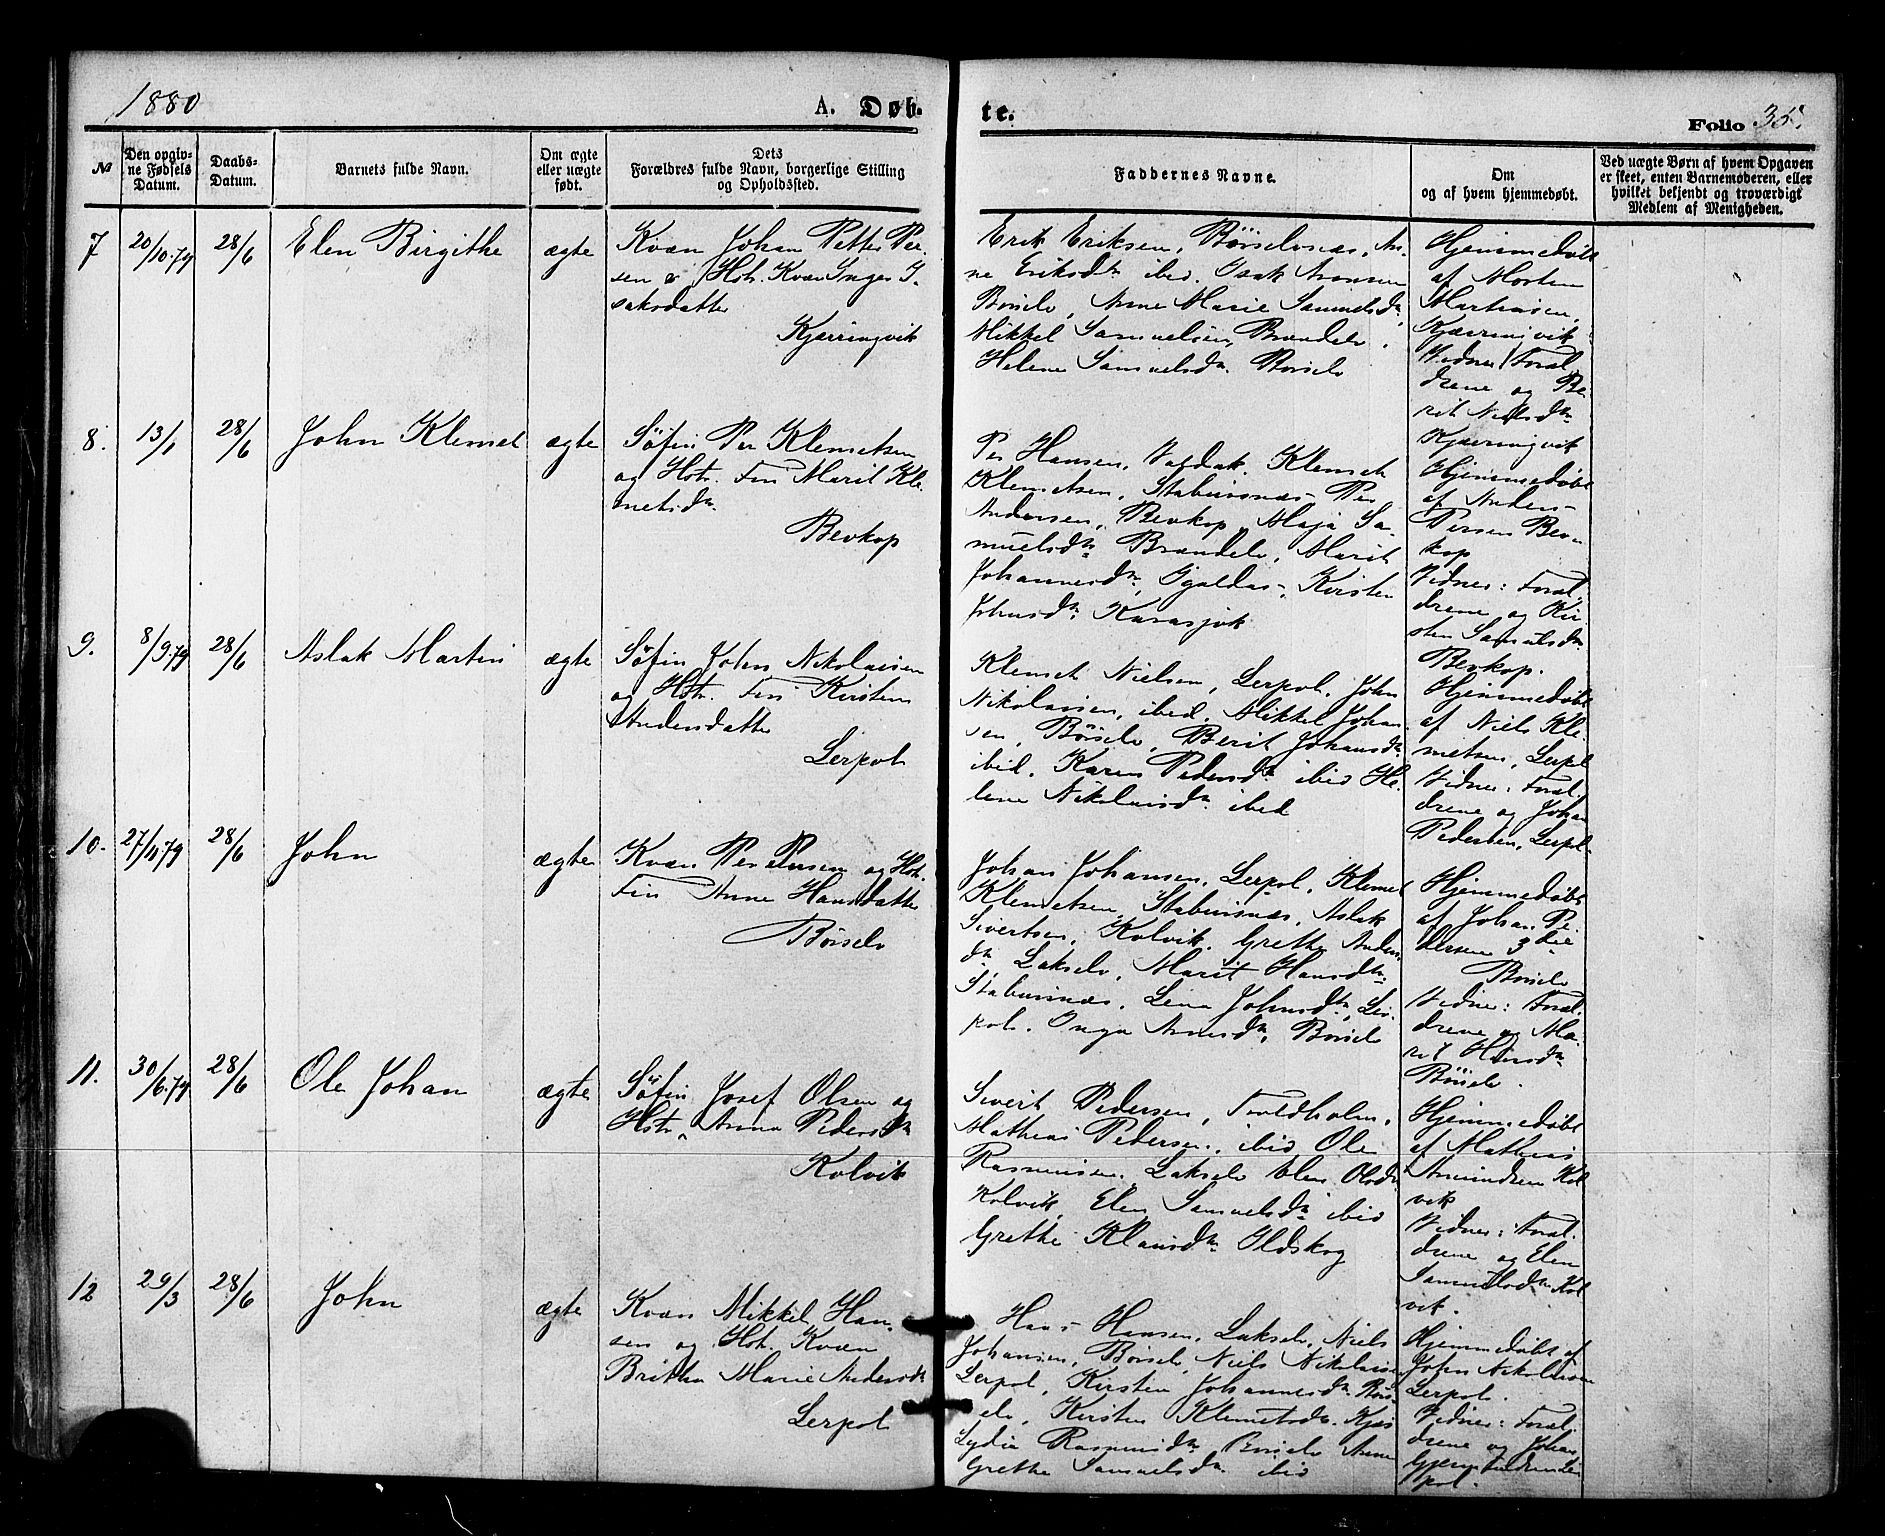 1880
A. Døb-
te.
Folio 35.
№
Den opgiv-
ne Fødsels
Datum.
Daabs-
Datum.
Barnets fulde Navn.
Om ægte
eller uægte
født.
Dets
Forældres fulde Navn, borgerlige Stilling
og Opholdssted.
Faddernes Navne.
Om
og af hvem hjemmedøbt.
Ved uægte Børn af hvem Opgaven
er skeet, enten Barnemoderen, eller
hvilket bekjendt og troværdigt
Medlem af Menigheden.
7
20/10.79
28/6
Elen Birgithe
ægte
Kvæn Johan Petter Per-
sen & Hstr. Kvæn Inger I-
saksdatter
Kjærringvik
Erik Eriksen, Børselvnæs, An-
ne Eriksdtr ibid. Isak Aronsen
Børselv, Anne Marie Samuelsdtr
Mikkel Samuelsen, Brændelv,
Helene Samuelsdtr Børselv
Hjemmedøbt
af Morten
Martinsen,
Kjærringvik
Vidner: Foræl-
drene og Be-
rit Nielsdtr
Kjærringvik
8.
13/1
28/6
John Klemet
ægte
Søfin Per Klemetsen
og Hstr. Fin Marit Kle-
metsdtr
Bevkop
Per Hansen, Valdak. Klemet
Klemetsen, Stabursnæs, Per
Andersen, Bevkop, Maja Sa-
muelsdtr Brændelv, Marit
Johannesdtr, Igaldas, Kirsten
Johnsdtr Karasjok
Hjemmedøbt
af Anders
Persen Bev-
kop
Vidner: Foræl-
drene og Kir-
sten Samuelsdtr
Bevkop.
9.
8/9.79
28/6
Aslak Martin
ægte
Søfin John Nikolaisen
og Hstr. Fin Kirsten
Andersdatter
Lerpol
Klemet Nielsen, Lerpol. John
Nikolaisen, ibid. Mikkel Johan-
sen, Børselv, Berit Johansdtr
ibid. Karen Pedersdtr ibid He-
lene Nikolaisdtr ibid
Hjemmedøbt
af Niels Kle-
metsen, Lerpol
Vidner: Foræl-
drene og Johan
Pedersen, Lerpol
10.
27/11.79
28/6
John
ægte
Kvæn Per Persen og Hstr.
Fin Anne Hansdatter
Børselv
Johan Johansen, Lerpol, Klemet
Klemetsen, Stabursnæs, Aslak
Sivertsen, Kolvik. Grethe Anders-
dtr Lakselv, Marit Hansdtr
Stabursnæs, Lena Johnsdtr, Ler-
pol. Inga Arnesdtr, Børselv
Hjemmedøbt
af Johan Pe-
dersen 3die
Børselv
Vidner: Foræl-
drene og Ma-
rit Hansdtr
Børselv.
11.
30/6.79
28/6
Ole Johan
ægte
Søfin Josef Olsen og
Hstr. Anna Pedersdtr
Kolvik
Sivert Pedersen,
Mathias Pedersen, ibid Ole
Rasmussen, Lakselv Elen Olsdtr
Kolvik, Elen Samuelsdtr ibid
Grethe Klausdtr Ildskog
Hjemmedøbt
af Mathias
Amundsen Kol-
vik
Vidner: Foræl-
drene og Elen
Samuelsdtr Kol-
vik.
12
29/3
28/6
John
ægte
Kvæn Mikkel Han-
sen og Hstr. Kvæn
Britha Marie Andersdtr
Lerpol
Hans Hansen, Lakselv, Niels
Johansen, Børselv, Niels Nikolaisen
Lerpol, Kirsten Johannesdtr Børs-
elv, Kirsten Klemetsdtr
Lydia Rasmusdtr Børselv Anne
Grethe Samuelsdtr ibid
Hjemmedøbt af
John Nikolaisen
Lerpol.
Vidner: Foræl-
drene og Johan
Ler-
pol.